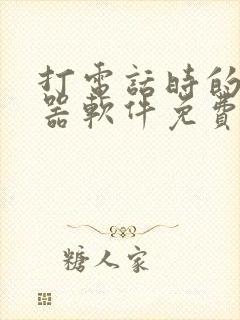 打電話時的
器軟件免費
糖人家